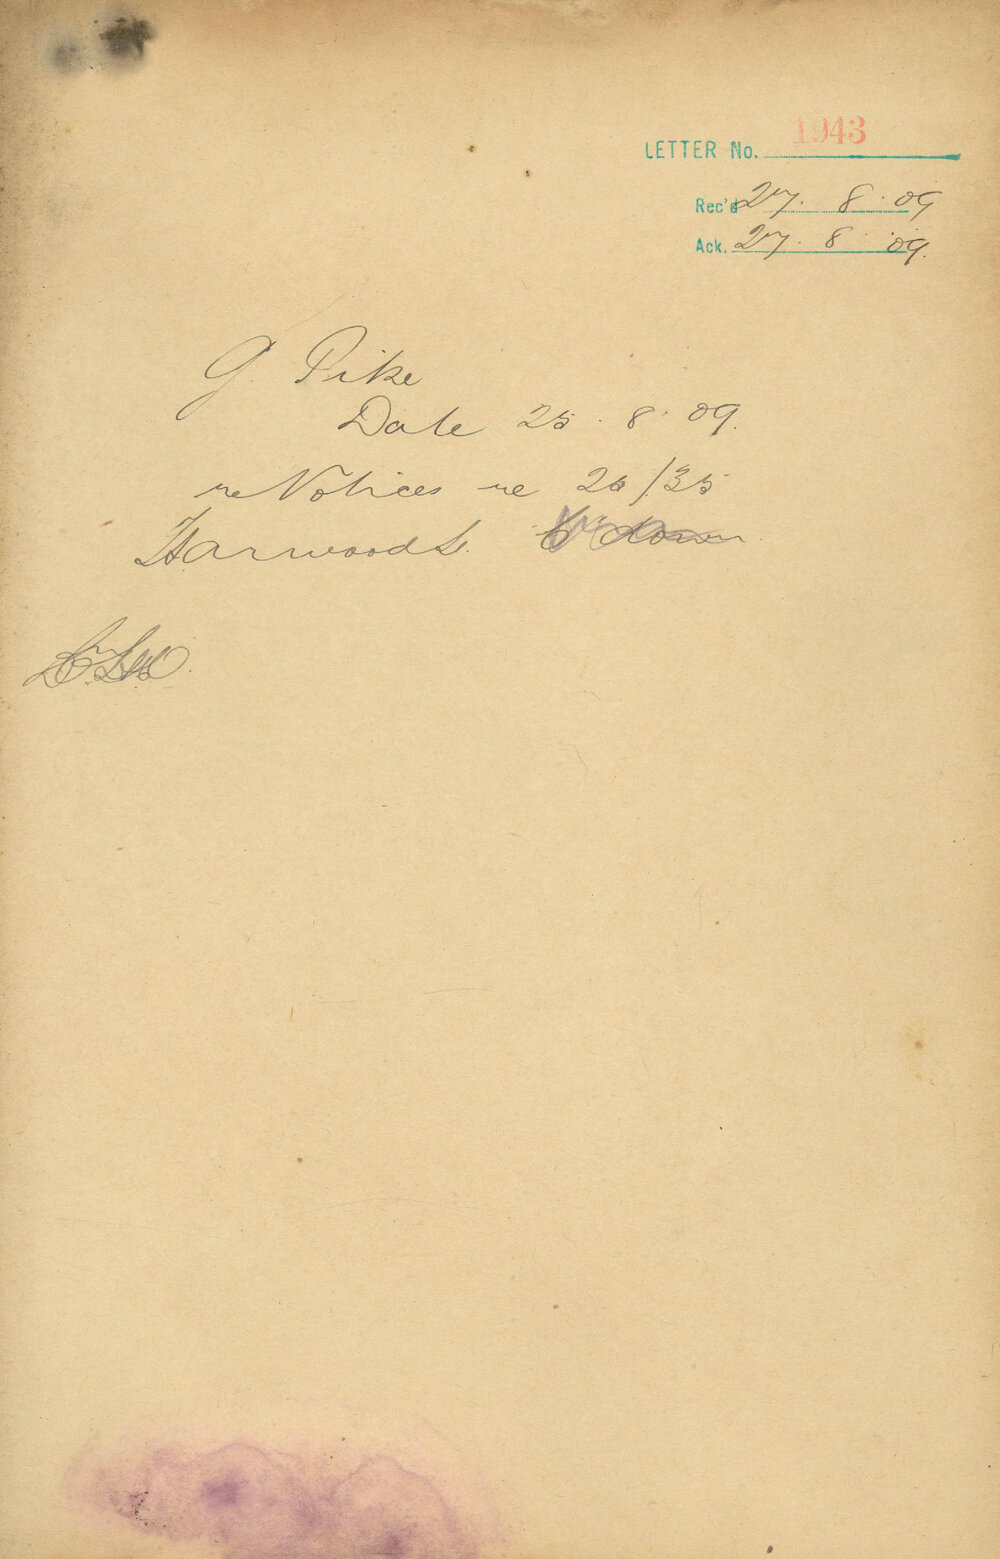 LETTER No. 1943
Rec'd 27. 8. 09
Ack. 27. 8 09.
G. Pike
Date 25. 8. 09.
re Notices re 26/35
Harwood St.